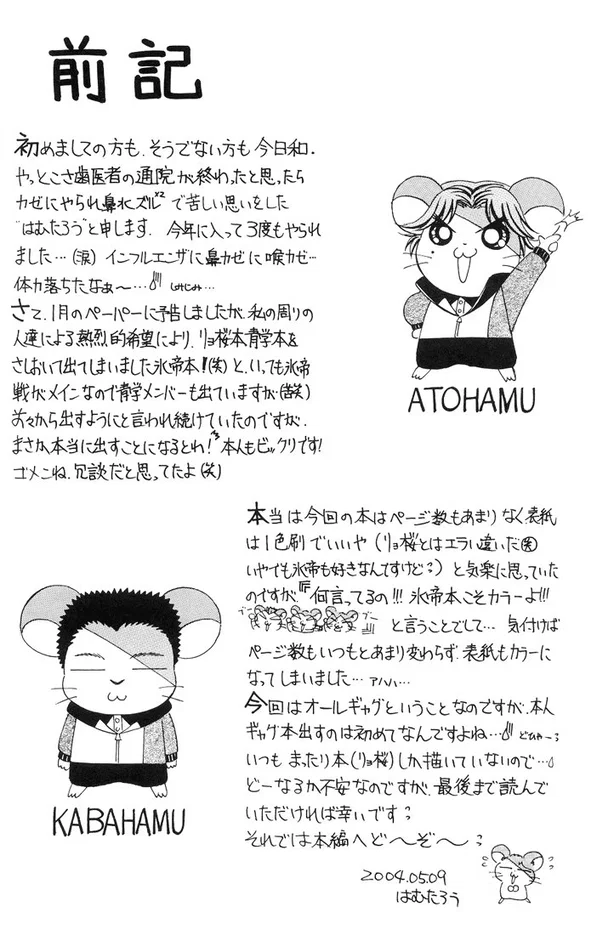 前記
初めましての方も、そうでない方も今日和。
やっとこさ歯医者の通院が終わったと思ったら
カゼにやられ鼻水ズル××で苦しい思いをした
"はむたろう"と申します。今年に入って3度もやられ
ました…(涙) インフルエンザに鼻カゼに喉カゼ…
体力落ちたなぁ〜… しみじみ…
さて、1月のペーパーに予告しましたが、私の周りの
人達による熱烈的希望により、リョ桜本青学本を
さしおいて出てしまいました氷帝本!(笑)と、いっても氷帝
戦がメインなので青学メンバーも出ていますが(苦笑)
前々から出すようにと言われ続けていたのですが、
まさか、本当に出すことになるとわ!本人もビックリです!
ゴメンね。冗談だと思ってたよ(笑)
ATOHAMU
本当は今回の本はページ数もあまりなく表紙
は1色刷でいいや(リョ桜とはエラい違いだ(笑)
いやでも氷帝も好きなんですけど?)と気楽に思っていた
のですが、『何言ってるの!!!氷帝本こそカラーよ!!!
と言うことでして…気付けば
ページ数もいつもとあまり変わらず、表紙もカラーに
なってしまいました…アハハ…
今回はオールギャグということなのですが、本人
ギャグ本出すのは初めてなんですよね… どひゃ〜
いつもまったり本(リョ桜)しか描いていないので…
どーなるか不安なのですが、最後まで読んで
いただければ幸いです
それでは本編へど〜ぞ〜
KABAHAMU
2004.05.09
はむたろう